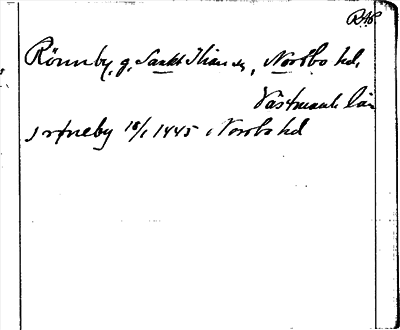 Rönnby, g, Sankt Ilians sn, Norrbo hd,
Västmanl. län
j røneby 18/1 1445 i Norrbo hd